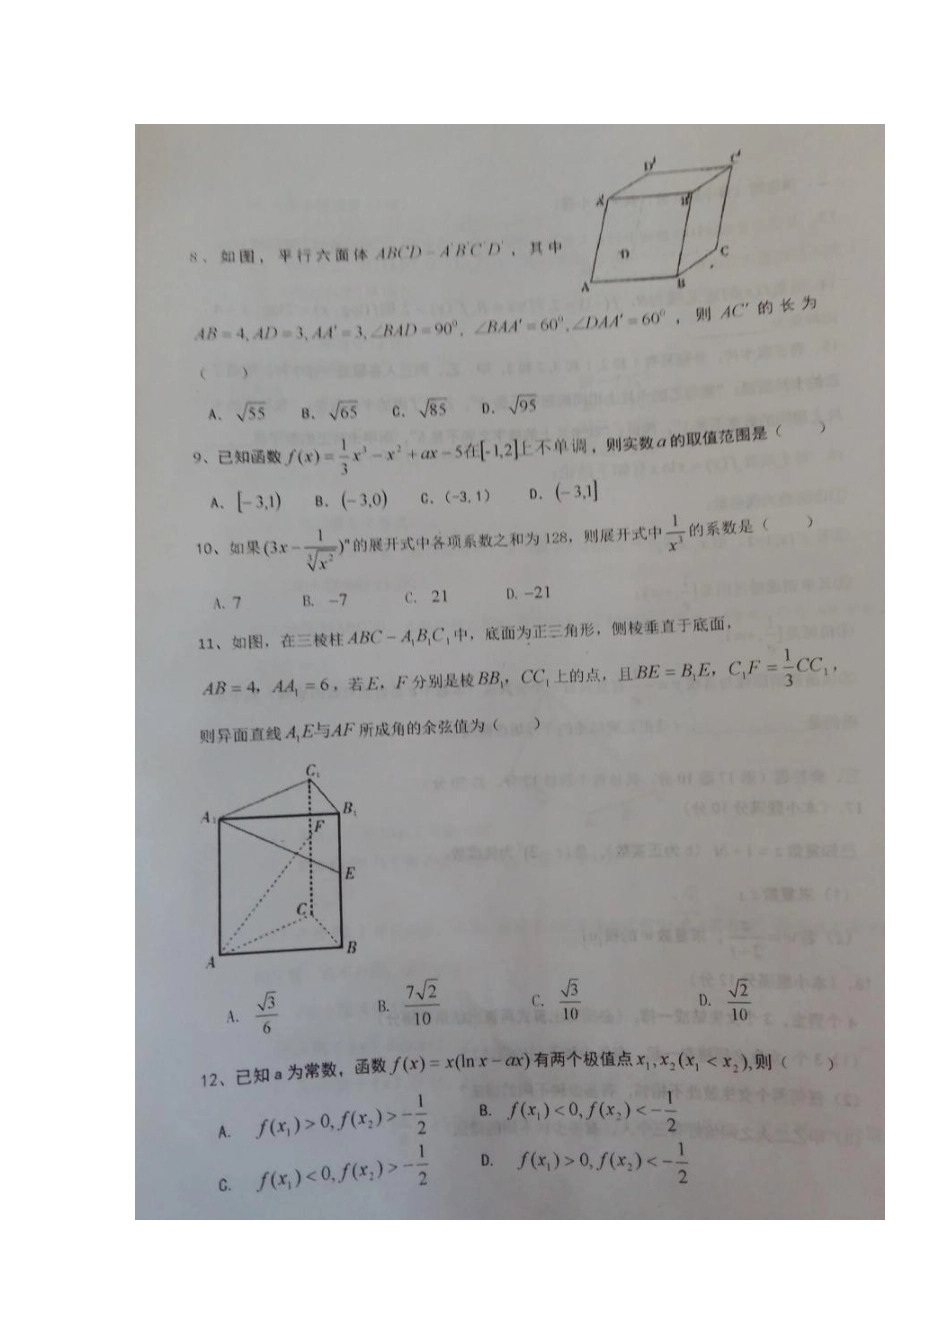 D' C'
A' B'
D C
A B
8、如图，平行六面体 ABCD－A'B'C'D'，其中
AB＝4, AD＝3, AA'＝3, ∠BAD＝90⁰, ∠BAA'＝60⁰, ∠DAA'＝60⁰，则 AC' 的长为
（ ）
A. √55 B. √65 C. √85 D. √95
9、已知函数 f(x)＝1/3 x³－x²＋ax－5在[-1,2]上不单调，则实数a的取值范围是（ ）
A. [－3,1) B. (－3,0) C. (-3, 1) D. (－3,1]
10、如果(3x－1/∛x²)ⁿ的展开式中各项系数之和为128，则展开式中 1/x³ 的系数是（ ）
A. 7 B. －7 C. 21 D. －21
11、如图，在三棱柱 ABC－A₁B₁C₁中，底面为正三角形，侧棱垂直于底面，
AB＝4，AA₁＝6，若E，F 分别是棱BB₁，CC₁上的点，且BE＝B₁E，C₁F＝1/3 CC₁，
则异面直线 A₁E与AF 所成角的余弦值为（ ）
C₁
A₁ B₁
F
E
C
A B
A. √3/6 B. 7√2/10 C. √3/10 D. √2/10
12、已知 a 为常数，函数 f(x)＝x(ln x－ax)有两个极值点x₁,x₂(x₁＜x₂),则（ ）
A. f(x₁)＞0, f(x₂)＞－1/2 B. f(x₁)＜0, f(x₂)＜－1/2
C. f(x₁)＜0, f(x₂)＞－1/2 D. f(x₁)＞0, f(x₂)＜－1/2